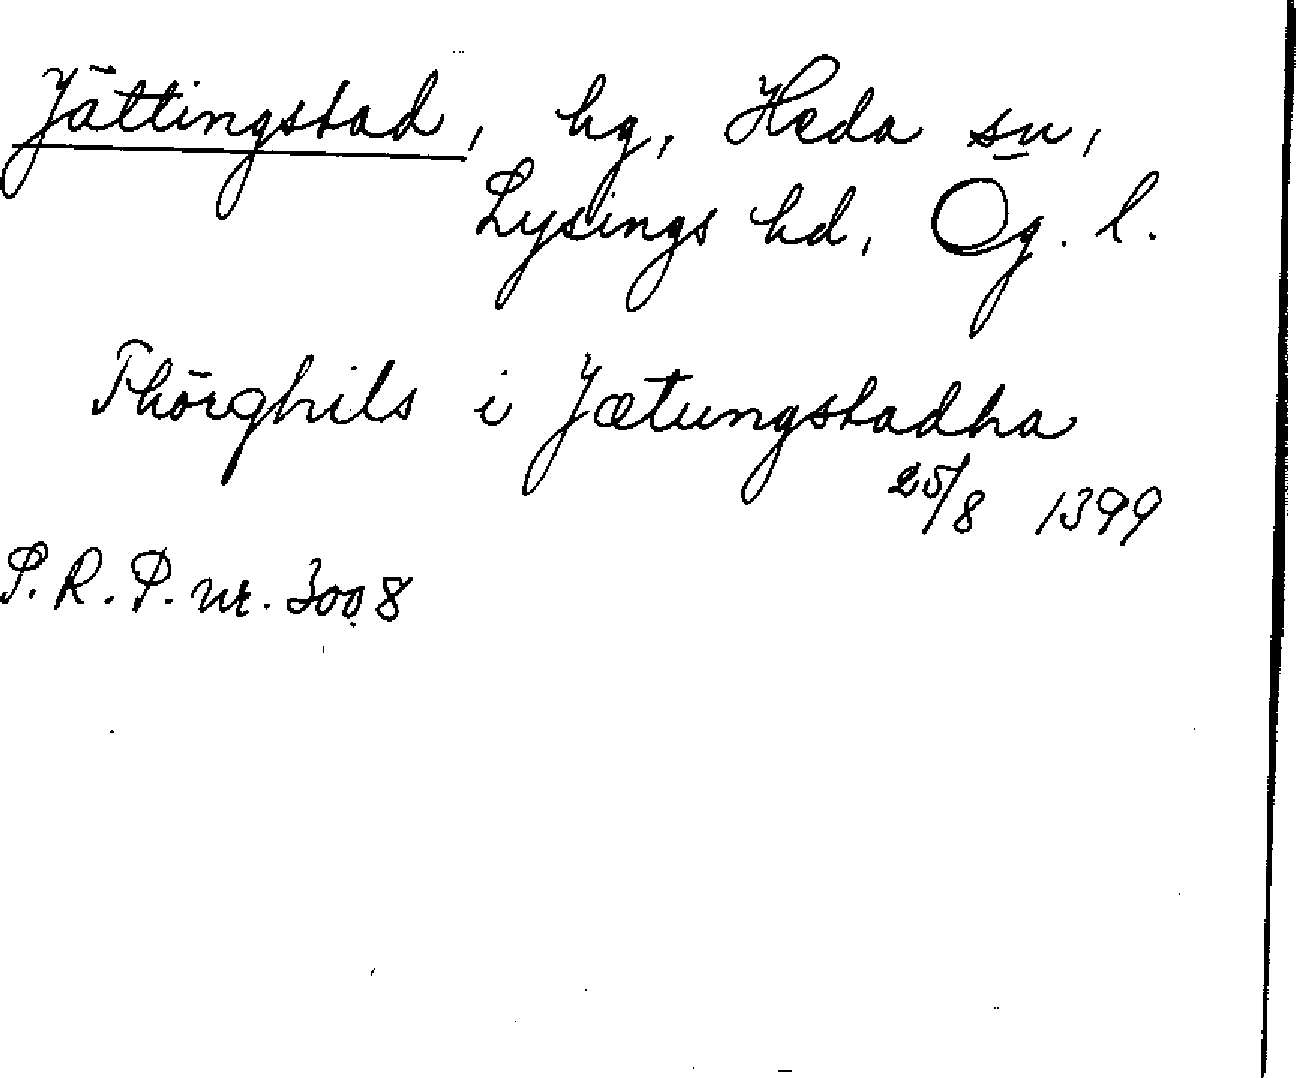 Jättingstad, hg, Heda sn,
Lysings hd, Ög. l.
Thörghils i Jætungstadha
25/8 1399
S. R. P. nr. 3008